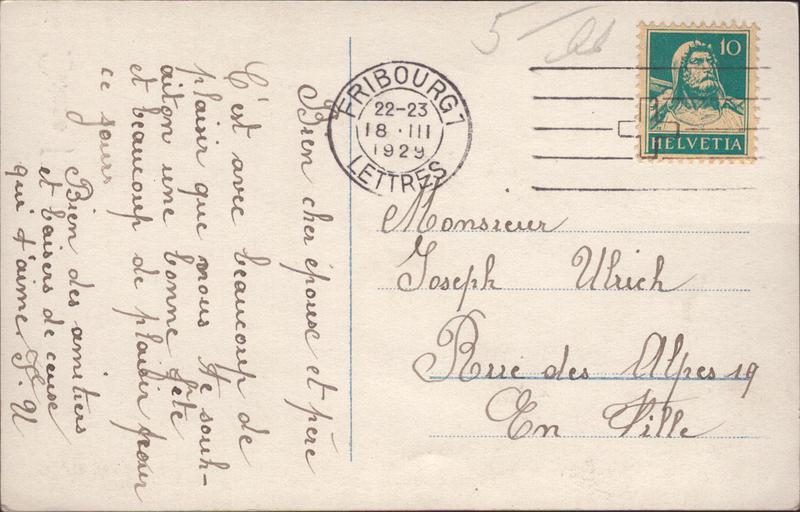 Bien cher épouse et père
C'est avec beaucoup de
plaisir que nous te souh-
aiton une bonne fête
et beaucoup de plaisir pour
ce jours
Bien des amitiers
et baisers de ceuse
qui t'aime. J. U
FRIBOURG 1
22-23
18·III
1929
LETTRES
10
HELVETIA
Monsieur
Joseph Ulrich
Rue des Alpes 19
En Ville